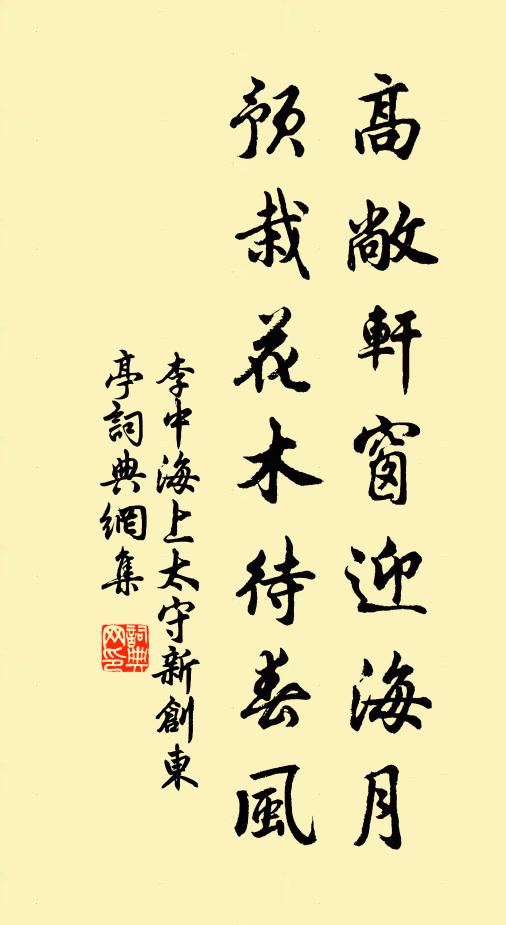 高敞軒窗迎海月
預栽花木待春風
李中海上太守新創東
亭詞典網集
詞典
網印